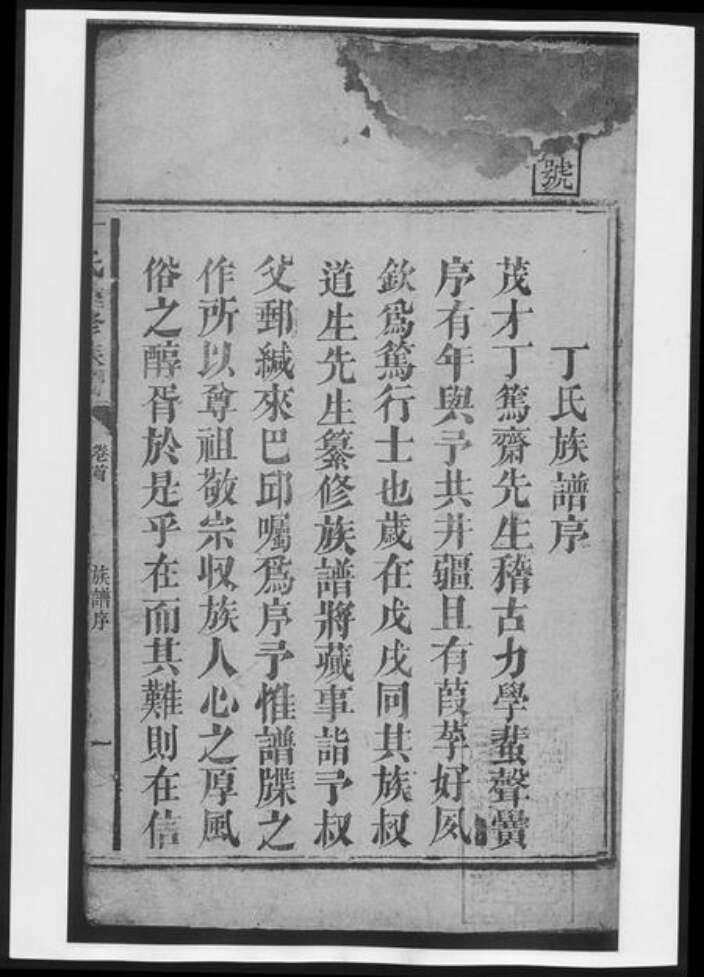 號
丁氏族譜序
茂才丁篤齋先生稽古力學蜚聲黌
序有年與予共井疆且有葭莩好夙
欽爲篤行士也歲在戊戌同其族叔
道生先生纂修族譜將蕆事詣予叔
父郵緘來巴邱囑爲序予惟譜牒之
作所以尊祖敬宗収族人心之厚風
俗之醇胥於是乎在而其難則在信
氏 修族譜
卷首
族譜序
一